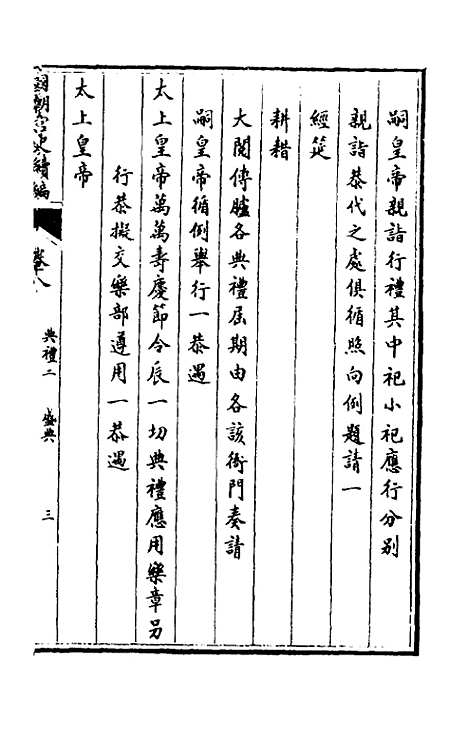 嗣皇帝親詣行禮其中祀小祀應行分別
親詣恭代之處俱循照向例題請一
經筵
耕耤
大閱傳臚各典禮屆期由各該衙門奏請
嗣皇帝循例舉行一恭遇
太上皇帝萬萬壽慶節令辰一切典禮應用樂章另
行恭擬交樂部遵用一恭遇
太上皇帝
國朝宮史續編 卷十八 典禮二 盛典 三